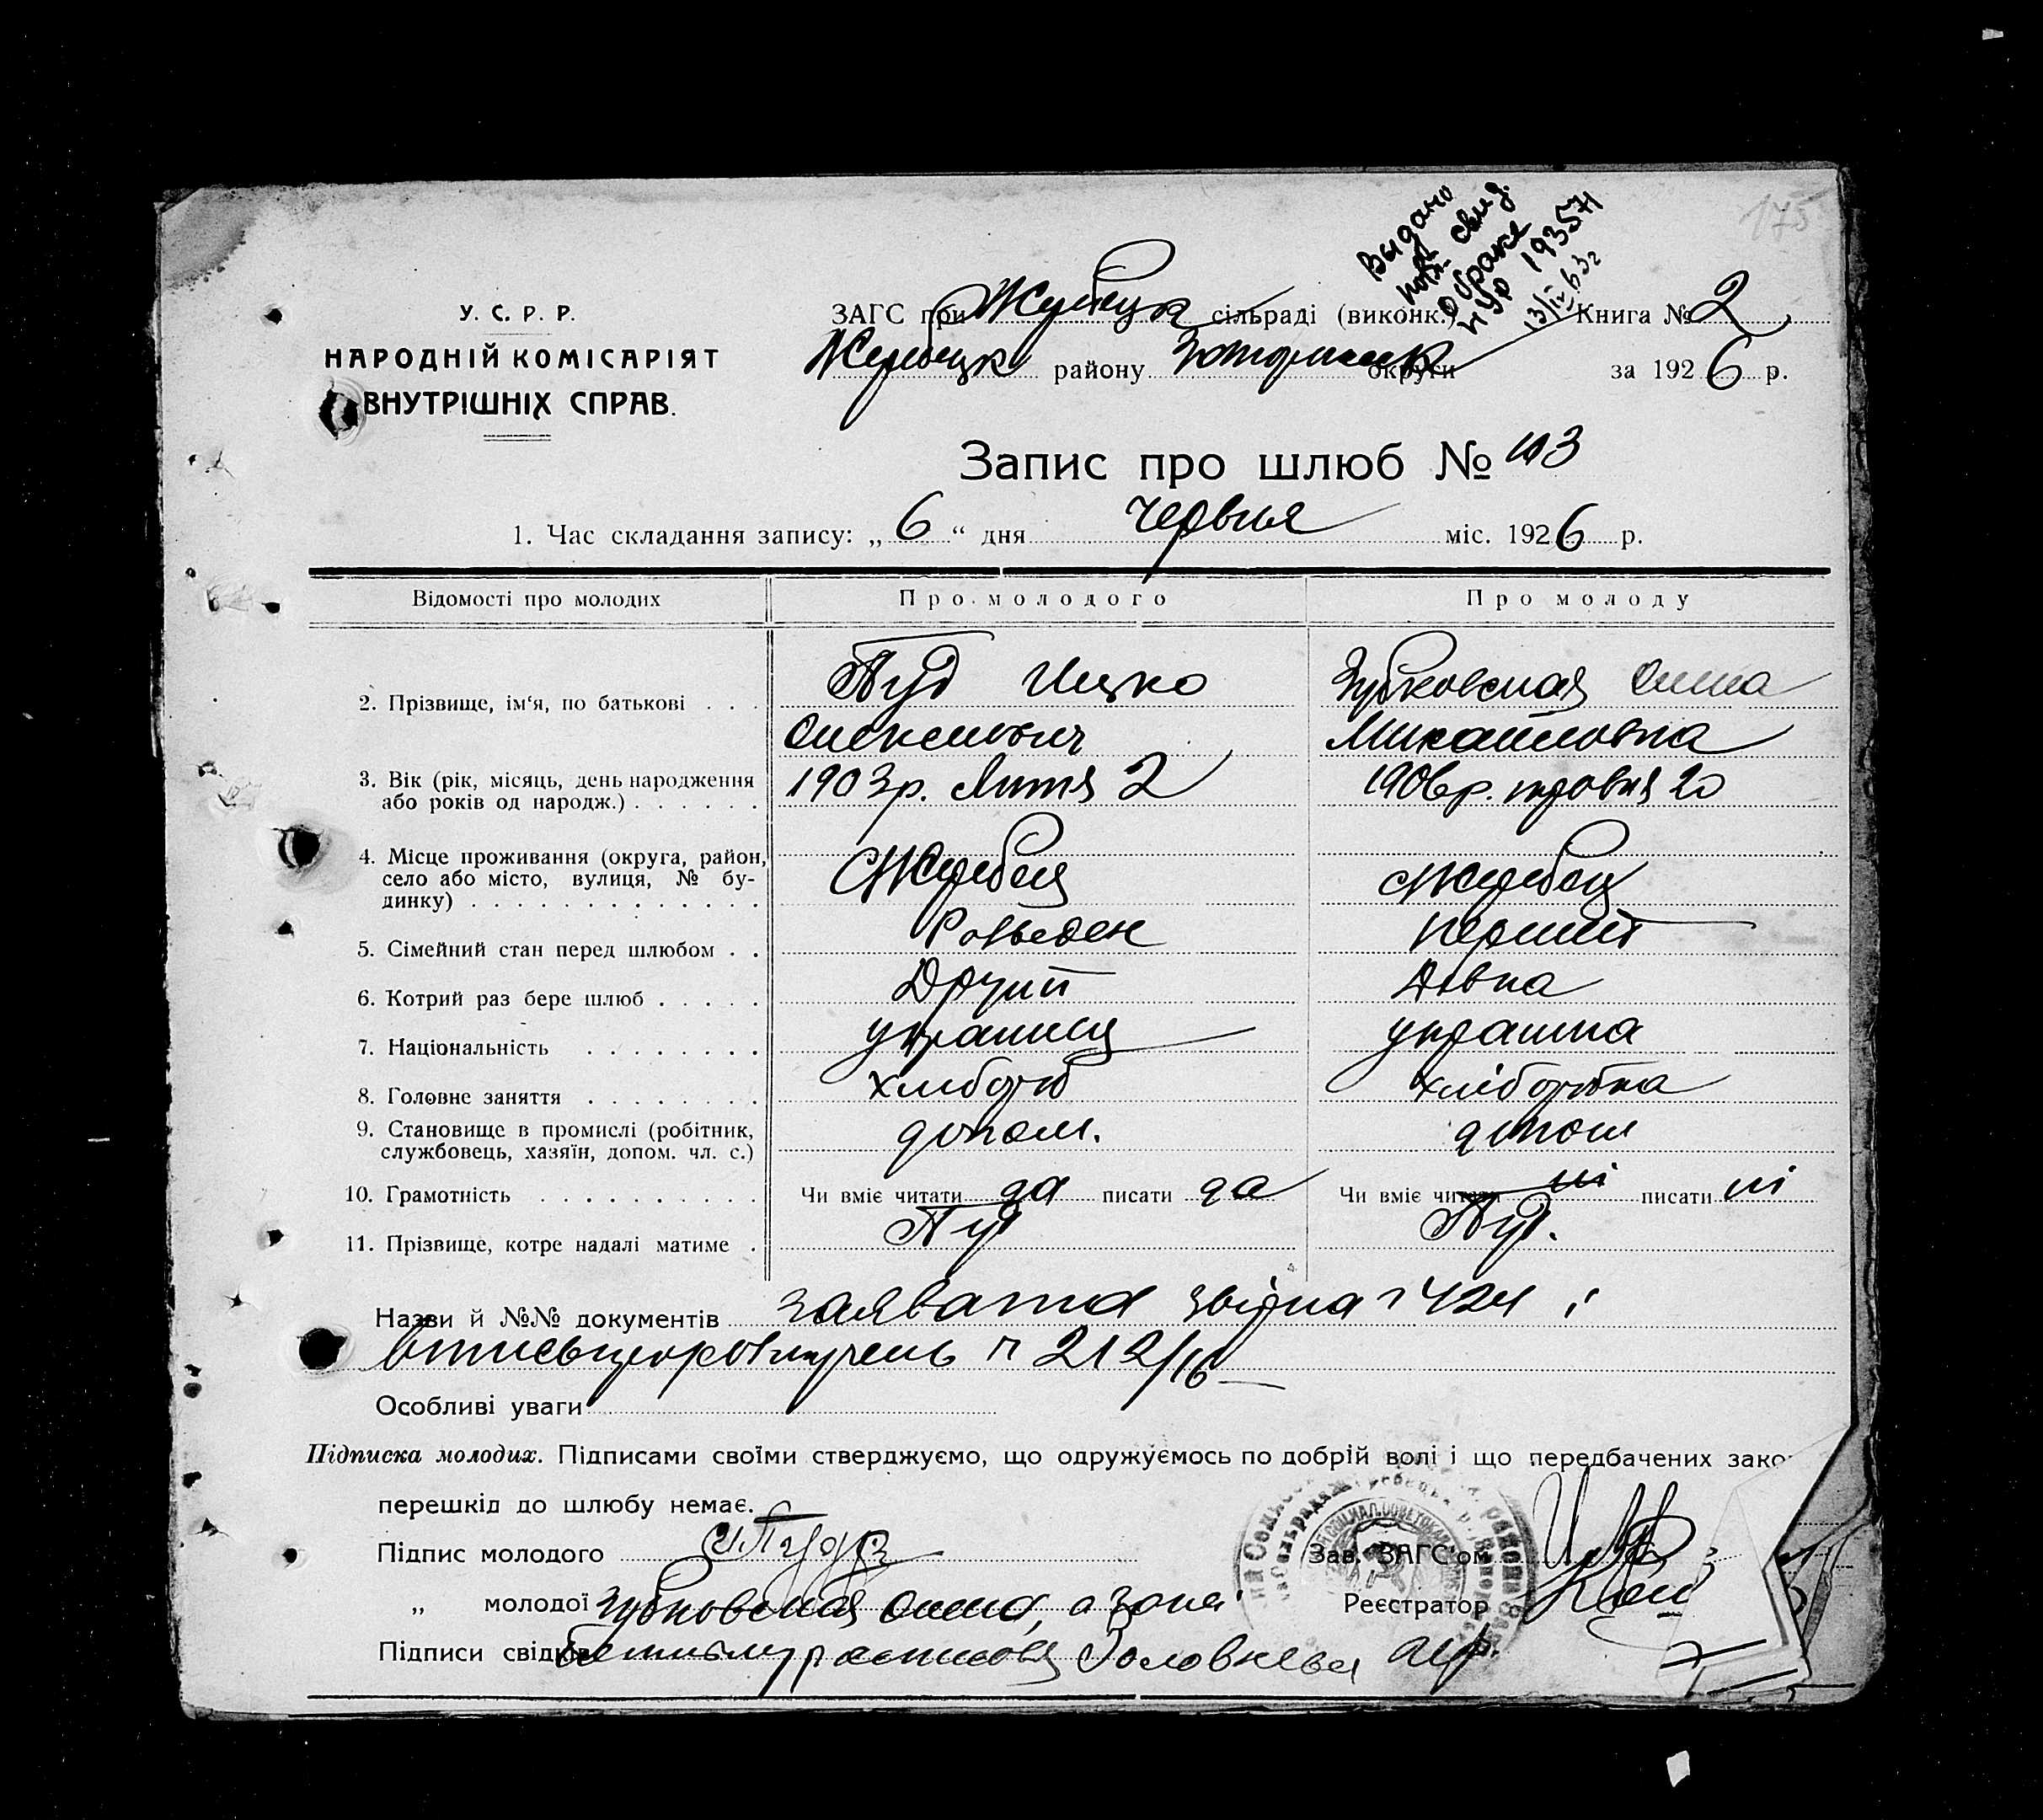 175
Выдано
повт. свид.
о браке
УР 193571
13/IV 63г
У. С. Р. Р.
НАРОДНІЙ КОМІСАРІЯТ
ВНУТРІШНІХ СПРАВ.
ЗАГС при Жеребецк сільраді (виконк.) Книга № 2
Жеребецк району округи за 1926 р.
Запис про шлюб № 103
1. Час складання запису: „6“ дня червня міс. 1926 р.
Відомості про молодих Про молодого Про молоду
2. Прізвище, ім‘я, по батькові Пуд Ицко Зубковская Олена
Олексиович Михайловна
3. Вік (рік, місяць, день народження або років од народж.) 1903р. Лютя 2 1906р. травня 20
4. Місце проживання (округа, район, село або місто, вулиця, № будинку) Жеребец Жеребец
5. Сімейний стан перед шлюбом Розведен перший
6. Котрий раз бере шлюб Другий Дівка
7. Національність украинец украинка
8. Головне заняття хлибороб хліборобка
9. Становище в промислі (робітник, службовець, хазяїн, допом. чл. с.) допом. допом
10. Грамотність Чи вміє читати да писати да Чи вміє читати ні писати ні
11. Прізвище, котре надалі матиме Пуд Пуд.
Назви й №№ документів заява та звірка 424 і
212/16
Особливі уваги
Підписка молодих. Підписами своїми стверджуємо, що одружуємось по добрій волі і що передбачених зако
перешкід до шлюбу немає.
Підпис молодого Пуд Зав. ЗАГС'ом
„ молодої Зубковская Олена, а за неї Реєстратор
Підписи свідків